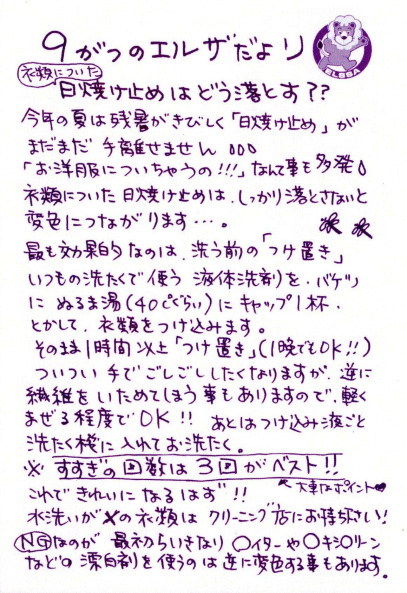 9がつのエルザだより
ELSA
衣類についた
日焼け止めはどう落とす??
今年の夏は残暑がきびしく「日焼け止め」が
まだまだ手離せません
「お洋服についちゃうの!!!」なんて事も多発
衣類についた日焼け止めは、しっかり落とさないと
変色につながります・・・。
最も効果的なのは、洗う前の「つけ置き」
いつもの洗たくで使う 液体洗剤を、バケツ
に ぬるま湯(40℃ぐらい)にキャップ1杯、
とかして、衣類をつけ込みます。
そのまま1時間以上「つけ置き」(1晩でもOK!!)
ついつい手でごしごししたくなりますが、逆に
繊維をいためてしまう事もありますので、軽く
まぜる程度でOK!! あとはつけ込み液ごと
洗たく桟に入れてお洗たく。
※ すすぎの回数は3回がベスト!!
大事なポイント♥
これできれいになるはず!!
水洗いが✗の衣類は クリーニング店にお持ち下さい!
NGなのが 最初らいきなり 〇イターや〇キシ〇リーン
などの漂白剤を使うのは逆に変色する事もあります。